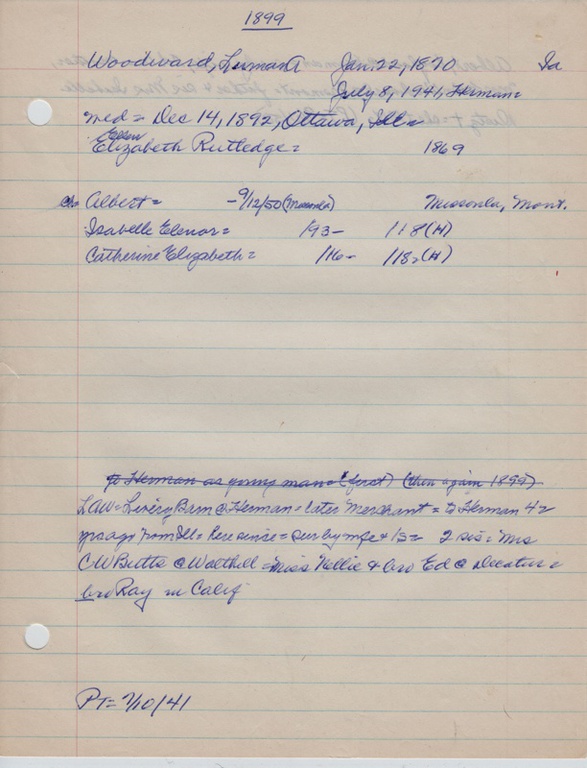 1899
Woodward, Lyman A Jan. 22, 1870 Ia
July 8, 1941, Herman=
med= Dec 14, 1892, Ottawa, Ill=
Ellen
Elizabeth Rutledge= 1869
ch= Albert= -9/12/50 (Missoula) Missoula, Mont.
Isabelle Elenor= /93- /18(H)
Catherine Elizabeth= /16- /18=(H)
to Herman as young man= (first) (then again 1899)
LAW= Livery Barn @ Herman= later Merchant= to Herman 42
yrs ago from Ill= here since= sur by mfe + 1s= 2 sis= Mrs
CW Butts @ Walthill= Miss Nellie & bro Ed @ Decatur=
bro Ray in Calif
PT= 7/10/41